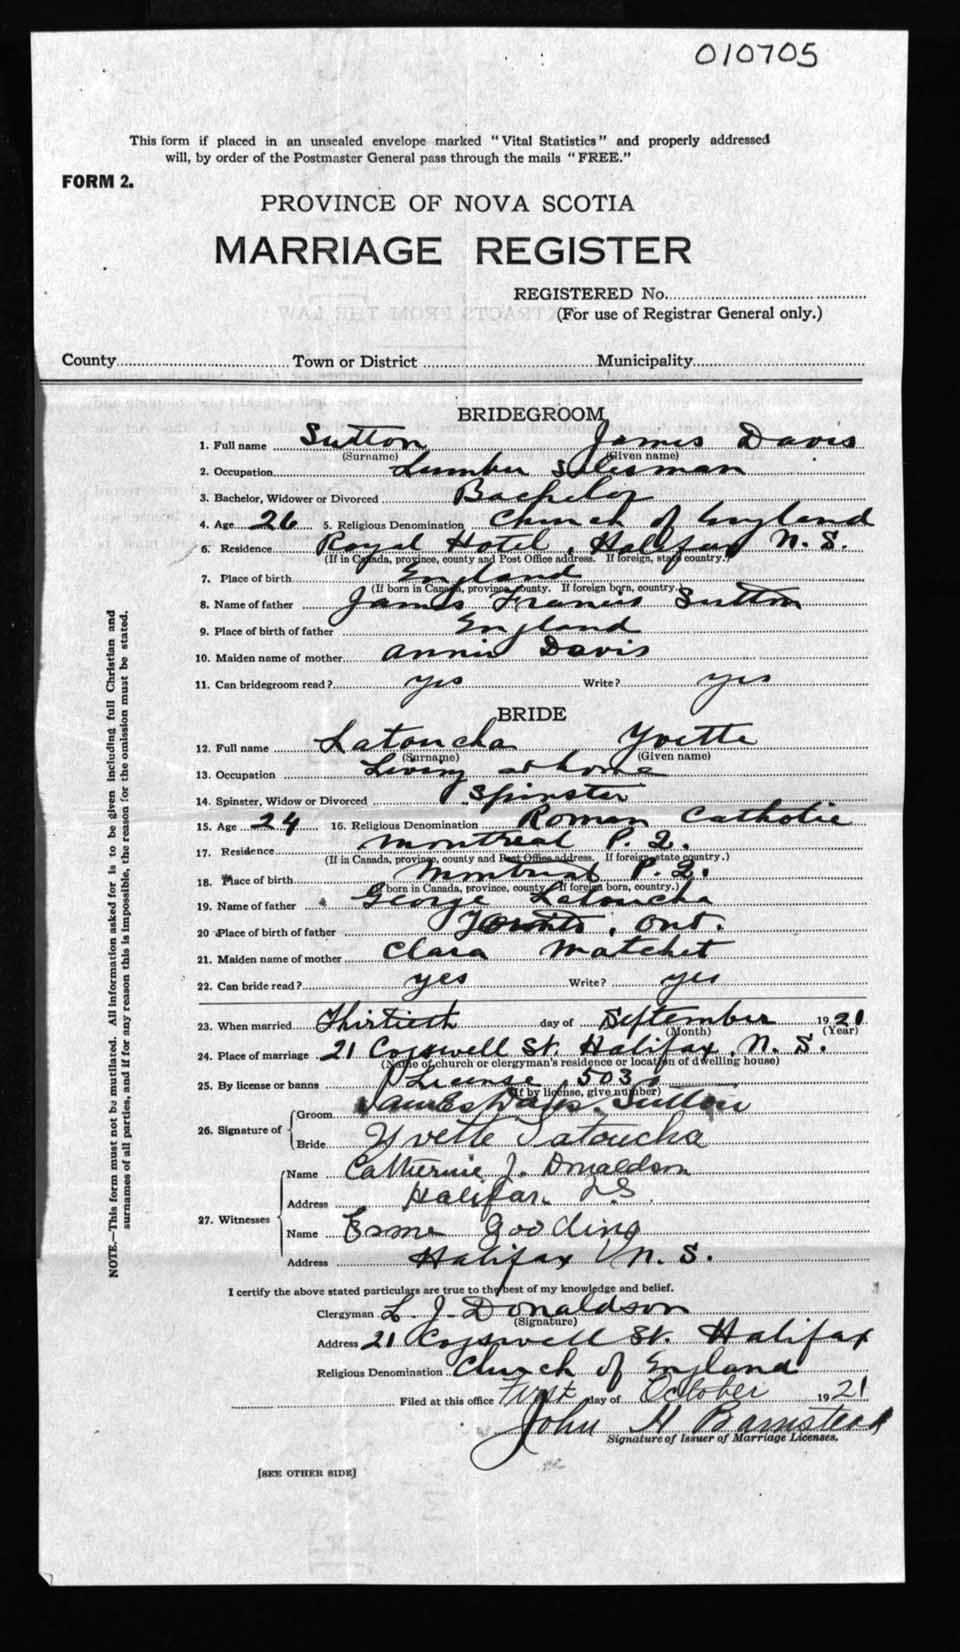 010705
This form if placed in an unsealed envelope marked "Vital Statistics" and properly addressed
will, by order of the Postmaster General pass through the mails "FREE."
FORM 2.
PROVINCE OF NOVA SCOTIA
MARRIAGE REGISTER
REGISTERED No.
(For use of Registrar General only.)
County Town or District Municipality
BRIDEGROOM
1. Full name Sutton James Davis
(Surname) (Given name)
2. Occupation Lumber Salesman
3. Bachelor, Widower or Divorced Bachelor
4. Age 26 5. Religious Denomination Church of England
6. Residence Royal Hotel, Halifax N. S.
(If in Canada, province, county and Post Office address. If foreign, state country.)
7. Place of birth England
(If born in Canada, province, county. If foreign born, country.)
8. Name of father James Francis Sutton
9. Place of birth of father England
10. Maiden name of mother Annie Davis
11. Can bridegroom read? yes Write? yes
BRIDE
12. Full name Latoucha Yvette
(Surname) (Given name)
13. Occupation Living at home
14. Spinster, Widow or Divorced Spinster
15. Age 24 16. Religious Denomination Roman Catholic
17. Residence Montreal P. Q.
(If in Canada, province, county and Post Office address. If foreign, state country.)
18. Place of birth Montreal P. Q.
born in Canada, province, county. If foreign born, country.)
19. Name of father George Latoucha
20 Place of birth of father Toronto, Ont.
21. Maiden name of mother Clara Matchet
22. Can bride read? yes Write? yes
23. When married Thirtieth day of September 1921
(Month) (Year)
24. Place of marriage 21 Cogswell St. Halifax, N. S.
(Name of church or clergyman's residence or location of dwelling house)
25. By license or banns License 503
(If by license, give number)
26. Signature of Groom James Davis Sutton
Bride Yvette Latoucha
27. Witnesses Name Catherine J. Donaldson
Address Halifax N.S.
Name Esme Gooding
Address Halifax N. S.
I certify the above stated particulars are true to the best of my knowledge and belief.
Clergyman L. J. Donaldson
(Signature)
Address 21 Cogswell St. Halifax
Religious Denomination Church of England
Filed at this office First day of October 1921
John H Barnstead
Signature of Issuer of Marriage Licenses.
[SEE OTHER SIDE]
NOTE.—This form must not be mutilated. All information asked for is to be given including full Christian and
surnames of all parties, and if for any reason this is impossible, the reason for the omission must be stated.